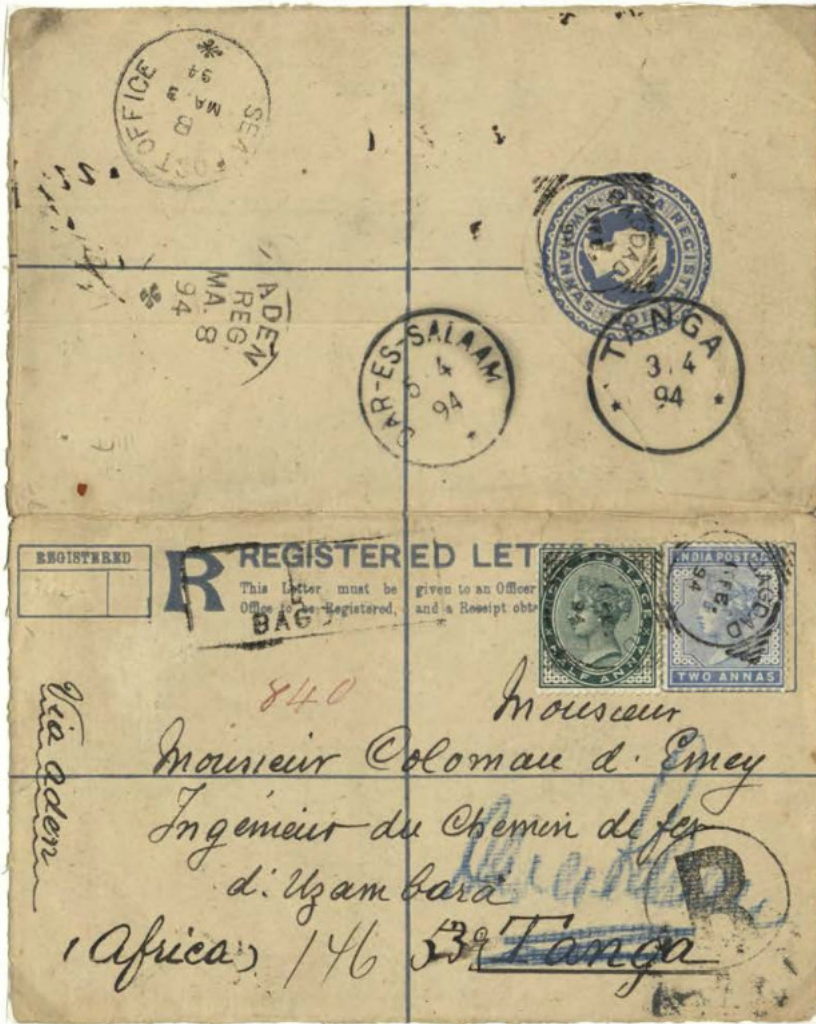 SEA POST OFFICE
B
MA. 3
94
BAGDAD
ADEN
REG.
MA. 8
94
DAR-ES-SALAAM
4
94
TANGA
3.4
94
REGISTERED
R
REGISTERED LET
This Letter must be given to an Officer
Office to be Registered, and a Receipt obt
BAG
INDIA POSTAGE
HALF ANNA
94
BAGDAD
94
TWO ANNAS
840
Monsieur
Via Aden
Monsieur Coloman d. Emey
Ingénieur du Chemin de fer
d: Uzambara
(Africa) 146 539 Tanga
R